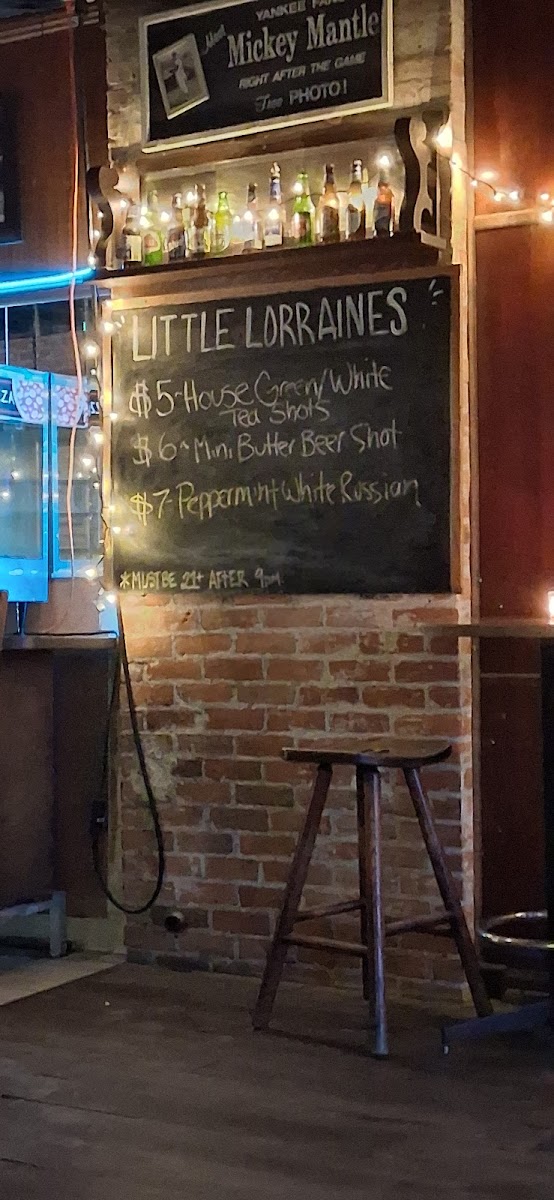 YANKEE FANS
Meet
Mickey Mantle
RIGHT AFTER THE GAME
Free PHOTO!
LITTLE LORRAINES
$5-House Green/White
Tea Shots
$6~Mini Butter Beer Shot
$7-Peppermint White Russian
*MUST BE 21+ AFTER 9pm
ZA